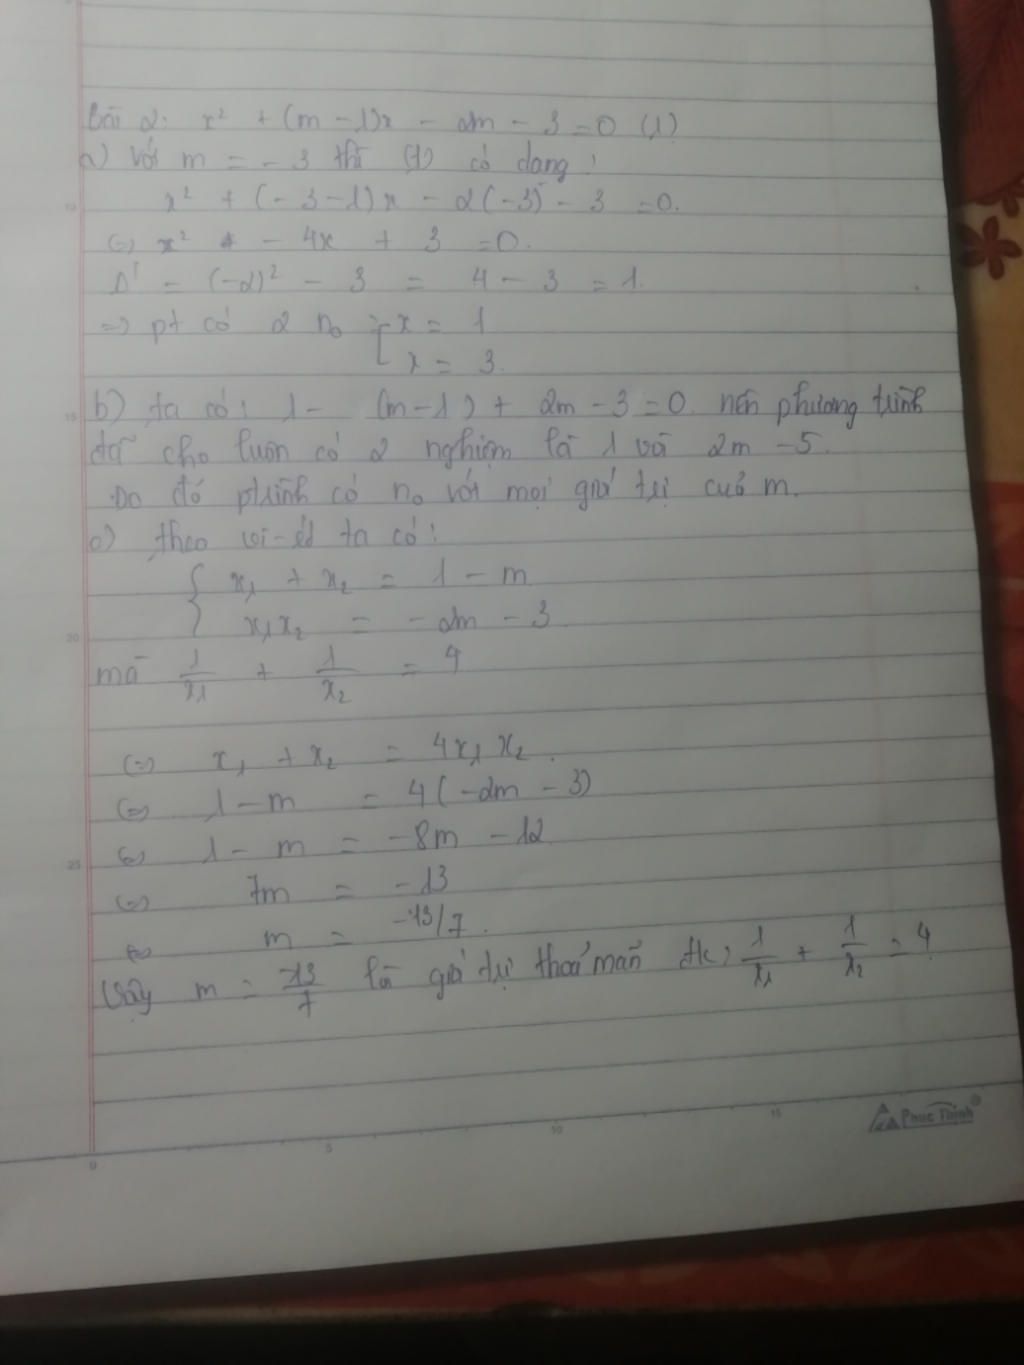 Bài 2: x² + (m - 1)x - 2m - 3 = 0 (1)
a) Với m = -3 thì (1) có dạng:
x² + (-3-1)x - 2(-3) - 3 = 0.
(=) x² - 4x + 3 = 0.
Δ' = (-2)² - 3 = 4 - 3 = 1.
=> pt có 2 n₀ : [ x = 1
x = 3.
b) ta có: 1 - (m-1) + 2m - 3 = 0 nên phương trình
đã cho luôn có 2 nghiệm là 1 và 2m - 5.
Do đó ptrình có n₀ với mọi giá trị của m.
c) theo vi-ét ta có:
{ x₁ + x₂ = 1 - m
x₁x₂ = -2m - 3
mà 1/x₁ + 1/x₂ = 4
(=) x₁ + x₂ = 4x₁x₂.
(=) 1 - m = 4(-2m - 3)
(=) 1 - m = -8m - 12
(=) 7m = -13
(=) m = -13/7.
Vậy m = -13/7 là giá trị thoả mãn đk: 1/x₁ + 1/x₂ = 4
15
20
25
0
5
10
15
Phuc Thinh®